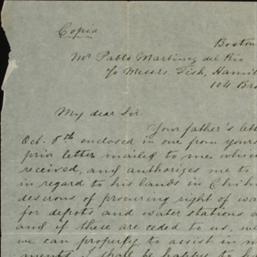 Copia
Boston
Mr Pablo Martinez del Rio
c/o Messrs Fish, Hamil
104 Bro
My dear Sir.
Your father's lett
Oct. 8th enclosed in one from yours
prior letter mailed to me which
received, and authorizes me to
in regard to his lands in Chihu
desirous of procuring right of wa
for depots and water stations a
and if these are ceded to us, w
we can properly to assist in
ments I shall be happy to h